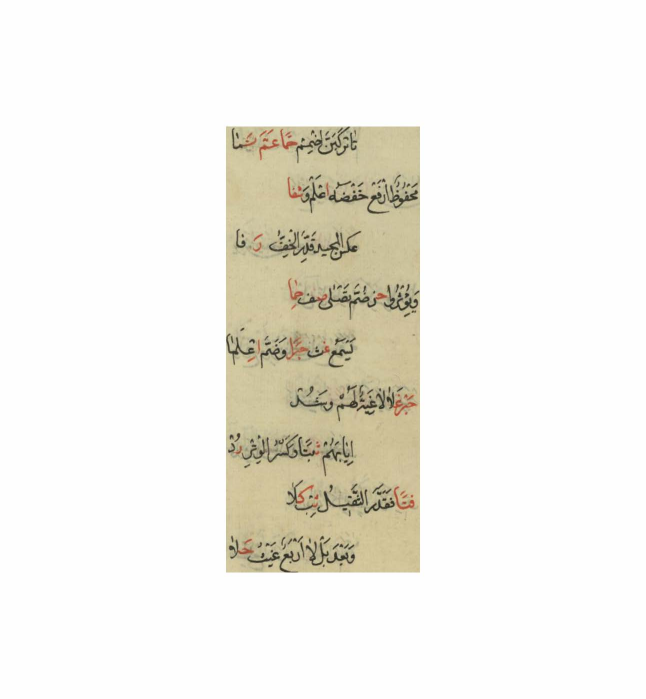 تا تركبن اضمم حما عم نما
محفوظ ارفع خفضه اعلم وشفا
عكس المجيد قدر الخف رفا
ويؤثروا حز ضم تصلى صف حما
يسمع غث حبرا وضم اعلما
حبر غلا لاغية لهم وشد
ايابهم ثبتا وكسر الوتر رد
فتا فقدر الثقيل ثب كلا
وبعد بل لا اربع غيب حلا